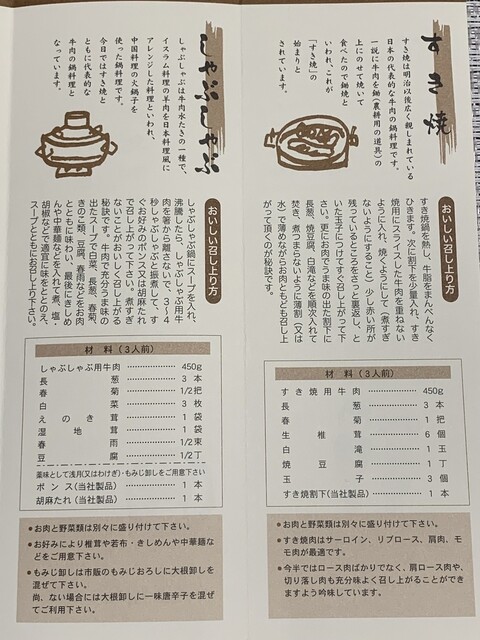 すき焼
すき焼は明治以後広く親しまれている
日本の代表的な牛肉の鍋料理です。
一説に牛肉を鋤(農耕用の道具)の
上にのせて焼いて
食べたので鋤焼と
いわれ、これが
「すき焼」の
始まりと
されています。
おいしい召し上り方
すき焼鍋を熱し、牛脂をまんべんなく
ひきます。次に割下を少量入れ、すき
焼用にスライスした牛肉を重ねない
ように入れ、焼くようにして(煮すぎ
ないようにすること)少し赤い所が
残っているところをさっと裏返し、と
いた玉子につけてすぐ召し上がって下
さい。更にお肉でうま味の出た割下に
長葱、焼豆腐、白滝などを順次入れて
焚き、煮つまらないように薄割(又は
水)で薄めながらお肉ともども召し上
がって頂くのが秘訣です。
材料(3人前)
すき焼用牛肉 450g
長葱 3本
春菊 1把
生椎茸 6個
白滝 1玉
焼豆腐 1丁
玉子 3個
すき焼割下(当社製品) 1本
●お肉と野菜類は別々に盛り付けて下さい。
●すき焼肉はサーロイン、リブロース、肩肉、モ
モ肉が最適です。
●今半ではロース肉ばかりでなく、肩ロース肉や、
切り落し肉も充分味よく召し上がることができ
ますよう吟味しています。
しゃぶしゃぶ
しゃぶしゃぶは牛肉水たきの一種で、
イスラム料理の羊肉を日本料理風に
アレンジした料理といわれ、
中国料理の火鍋子を
使った鍋料理です。
今日ではすき焼と
ともに代表的な
牛肉の鍋料理と
なっています。
おいしい召し上り方
しゃぶしゃぶ鍋にスープを入れ、
沸騰したら、しゃぶしゃぶ用牛
肉を箸から離さないで、3〜4
秒しゃぶしゃぶと振濯して、す
ぐお好みのポンス又は胡麻たれ
で召し上がって下さい。煮すぎ
ないことがおいしく召し上がる
秘訣です。牛肉で充分うま味の
出たスープで白菜、長葱、春菊、
きのこ類、豆腐、春雨などをお肉
とともに味わい、最後にきしめ
んや中華麺などを入れて煮、塩・
胡椒などで適宜に味をととのえ、
スープとともにお召し上り下さい。
材料(3人前)
しゃぶしゃぶ用牛肉 450g
長葱 3本
春菊 1/2把
白菜 3枚
えのき茸 1袋
湿地茸 1袋
春雨 1/2束
豆腐 1/2丁
薬味として浅月(又はわけぎ)・もみじ卸しをご用意下さい
ポンス(当社製品) 1本
胡麻たれ(当社製品) 1本
●お肉と野菜類は別々に盛り付けて下さい。
●お好みにより椎茸や若布・きしめんや中華麺な
どをご用意下さい。
●もみじ卸しは市販のもみじおろしに大根卸しを
混ぜて下さい。
尚、ない場合には大根卸しに一味唐辛子を混ぜ
てご利用下さい。